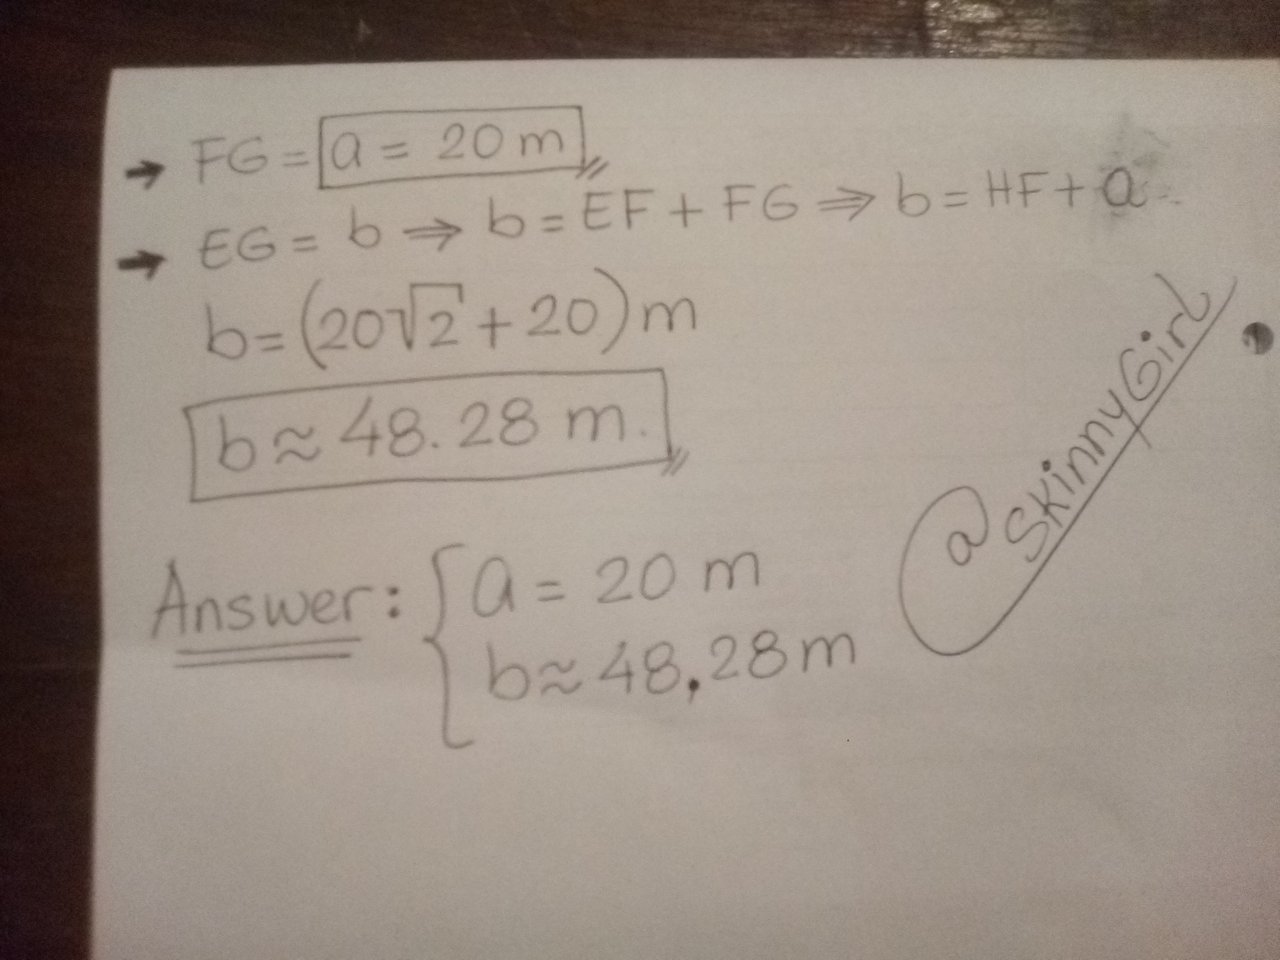 → FG = a = 20 m
→ EG = b ⇒ b = EF + FG ⇒ b = HF + a
b = (20√2 + 20) m
b ≈ 48.28 m.
Answer: { a = 20 m
b ≈ 48,28 m
@SkinnyGirl